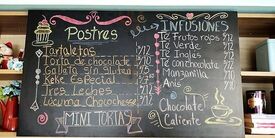 Postres
Tartaletas
Torta de chocolate
Galleta sin gluten
Keke Especial
Tres Leches
Lúcuma Chocochesse
MINI TORTAS
INFUSIONES
Te Frutos rojos
Te Verde
Te Ingles
Te con chocolate
Manzanilla
Anis
Chocolate
Caliente